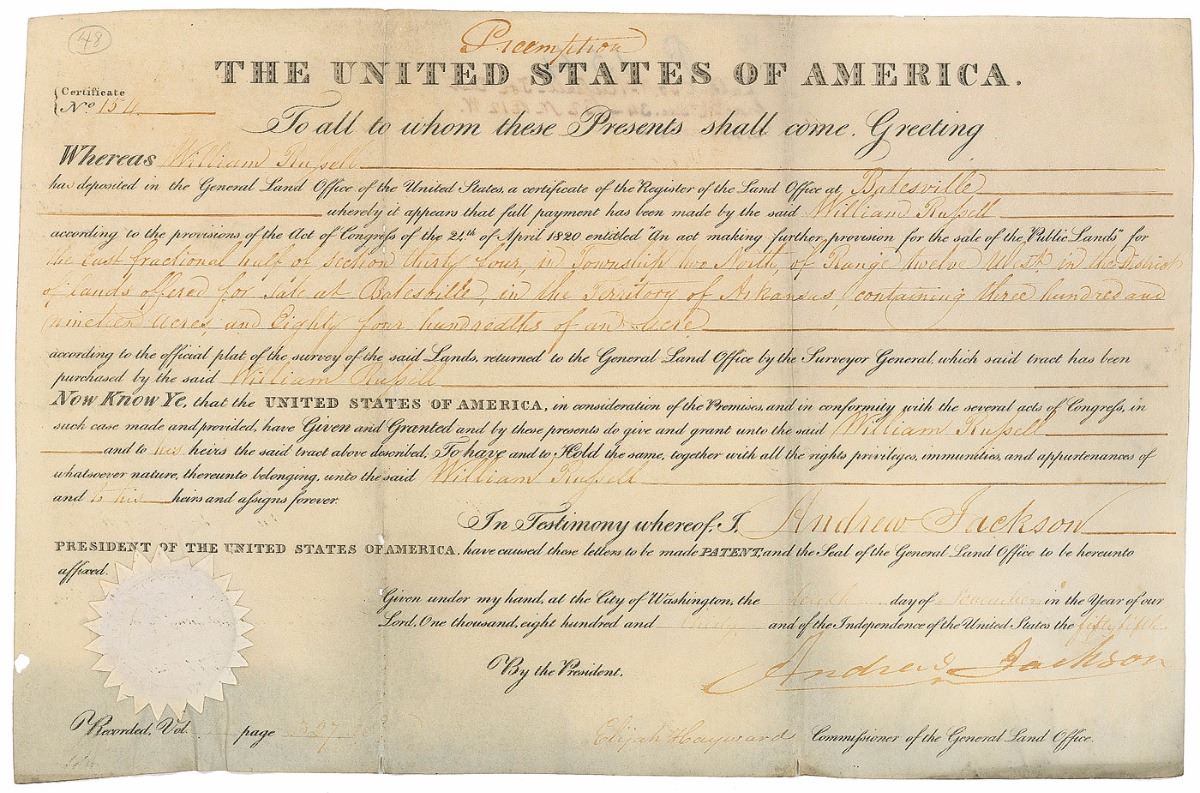 48
Preemption
THE UNITED STATES OF AMERICA.
Certificate
No. 154
To all to whom these Presents shall come, Greeting
Whereas William Russell
has deposited in the General Land Office of the United States, a certificate of the Register of the Land Office at Batesville
whereby it appears that full payment has been made by the said William Russell
according to the provisions of the Act of Congress of the 24th of April 1820 entitled "An act making further provision for the sale of the Public Lands" for
the East fractional half of Section thirty four, in Township two North, of Range twelve West, in the District
of lands offered for Sale at Batesville, in the Territory of Arkansas, containing three hundred and
nineteen Acres, and Eighty four hundredths of an Acre
according to the official plat of the survey of the said Lands, returned to the General Land Office by the Surveyor General, which said tract has been
purchased by the said William Russell
Now Know Ye, that the UNITED STATES OF AMERICA, in consideration of the Premises, and in conformity with the several acts of Congress, in
such case made and provided, have Given and Granted and by these presents do give and grant unto the said William Russell
and to his heirs the said tract above described, To have and to Hold the same, together with all the rights privileges, immunities, and appurtenances of
whatsoever nature, thereunto belonging, unto the said William Russell
and to his heirs and assigns forever.
In Testimony whereof, I, Andrew Jackson
PRESIDENT OF THE UNITED STATES OF AMERICA, have caused those letters to be made PATENT, and the Seal of the General Land Office to be hereunto
affixed.
Given under my hand, at the City of Washington, the day of November in the Year of our
Lord, One thousand, eight hundred and thirty and of the Independence of the United States the fifty fifth
Andrew Jackson
By the President.
Recorded, Vol. page 327
Elijah Hayward Commissioner of the General Land Office.